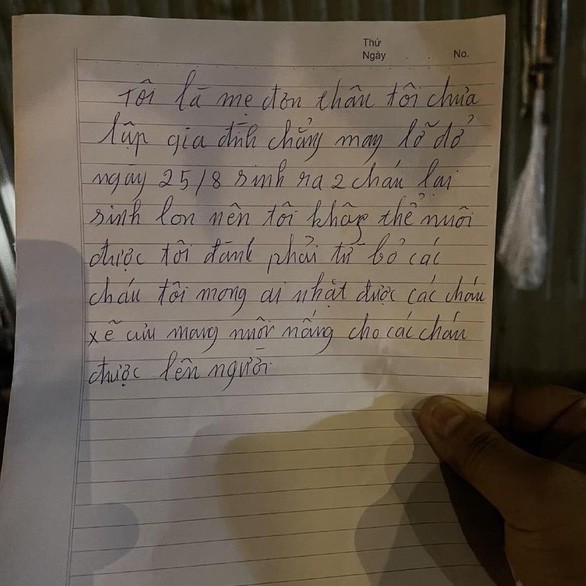 Thứ
Ngày No.
Tôi là mẹ đơn thân tôi chưa
lập gia đình chẳng may lỡ dở
ngay 25/8 sinh ra 2 cháu lại
sinh lon nên tôi không thể nuôi
được tôi đành phải từ bỏ các
cháu tôi mong ai nhặt được các cháu
xẽ cưu mang nuôi nấng cho các cháu
được lên người